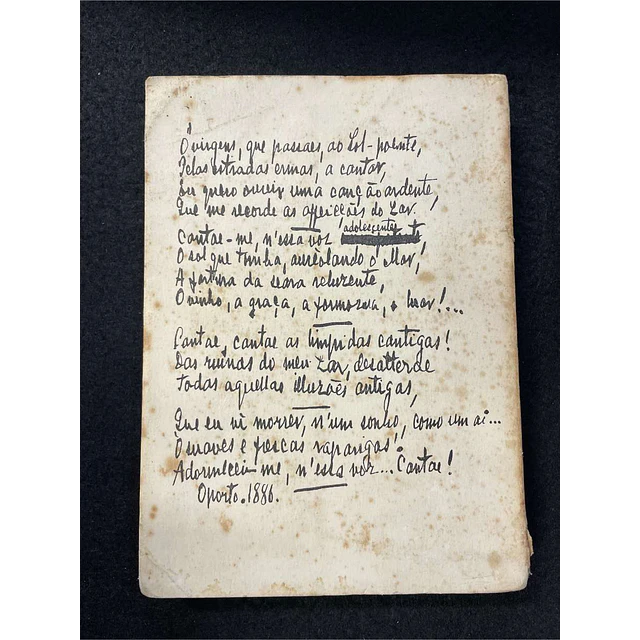 Ó virgens, que passaes, ao Sol-poente,
Pelas estradas ermas, a cantar,
Eu quero ouvir uma canção ardente,
Que me recorde as affeições do Lar.
Cantae-me, n'essa voz adolescente
O sol que tomba, aureolando o Mar,
A fartura da seara reluzente,
O vinho, a graça, a formosura, o luar!...
Cantae, cantae as limpidas cantigas!
Das ruinas do meu Lar, desatterae
Todas aquellas illuzões antigas,
Que eu vi morrer, n'um sonho, como um ai...
Ó suaves e frescas raparigas!
Adormecei-me, n'essa voz... Cantae!
Oporto. 1886.